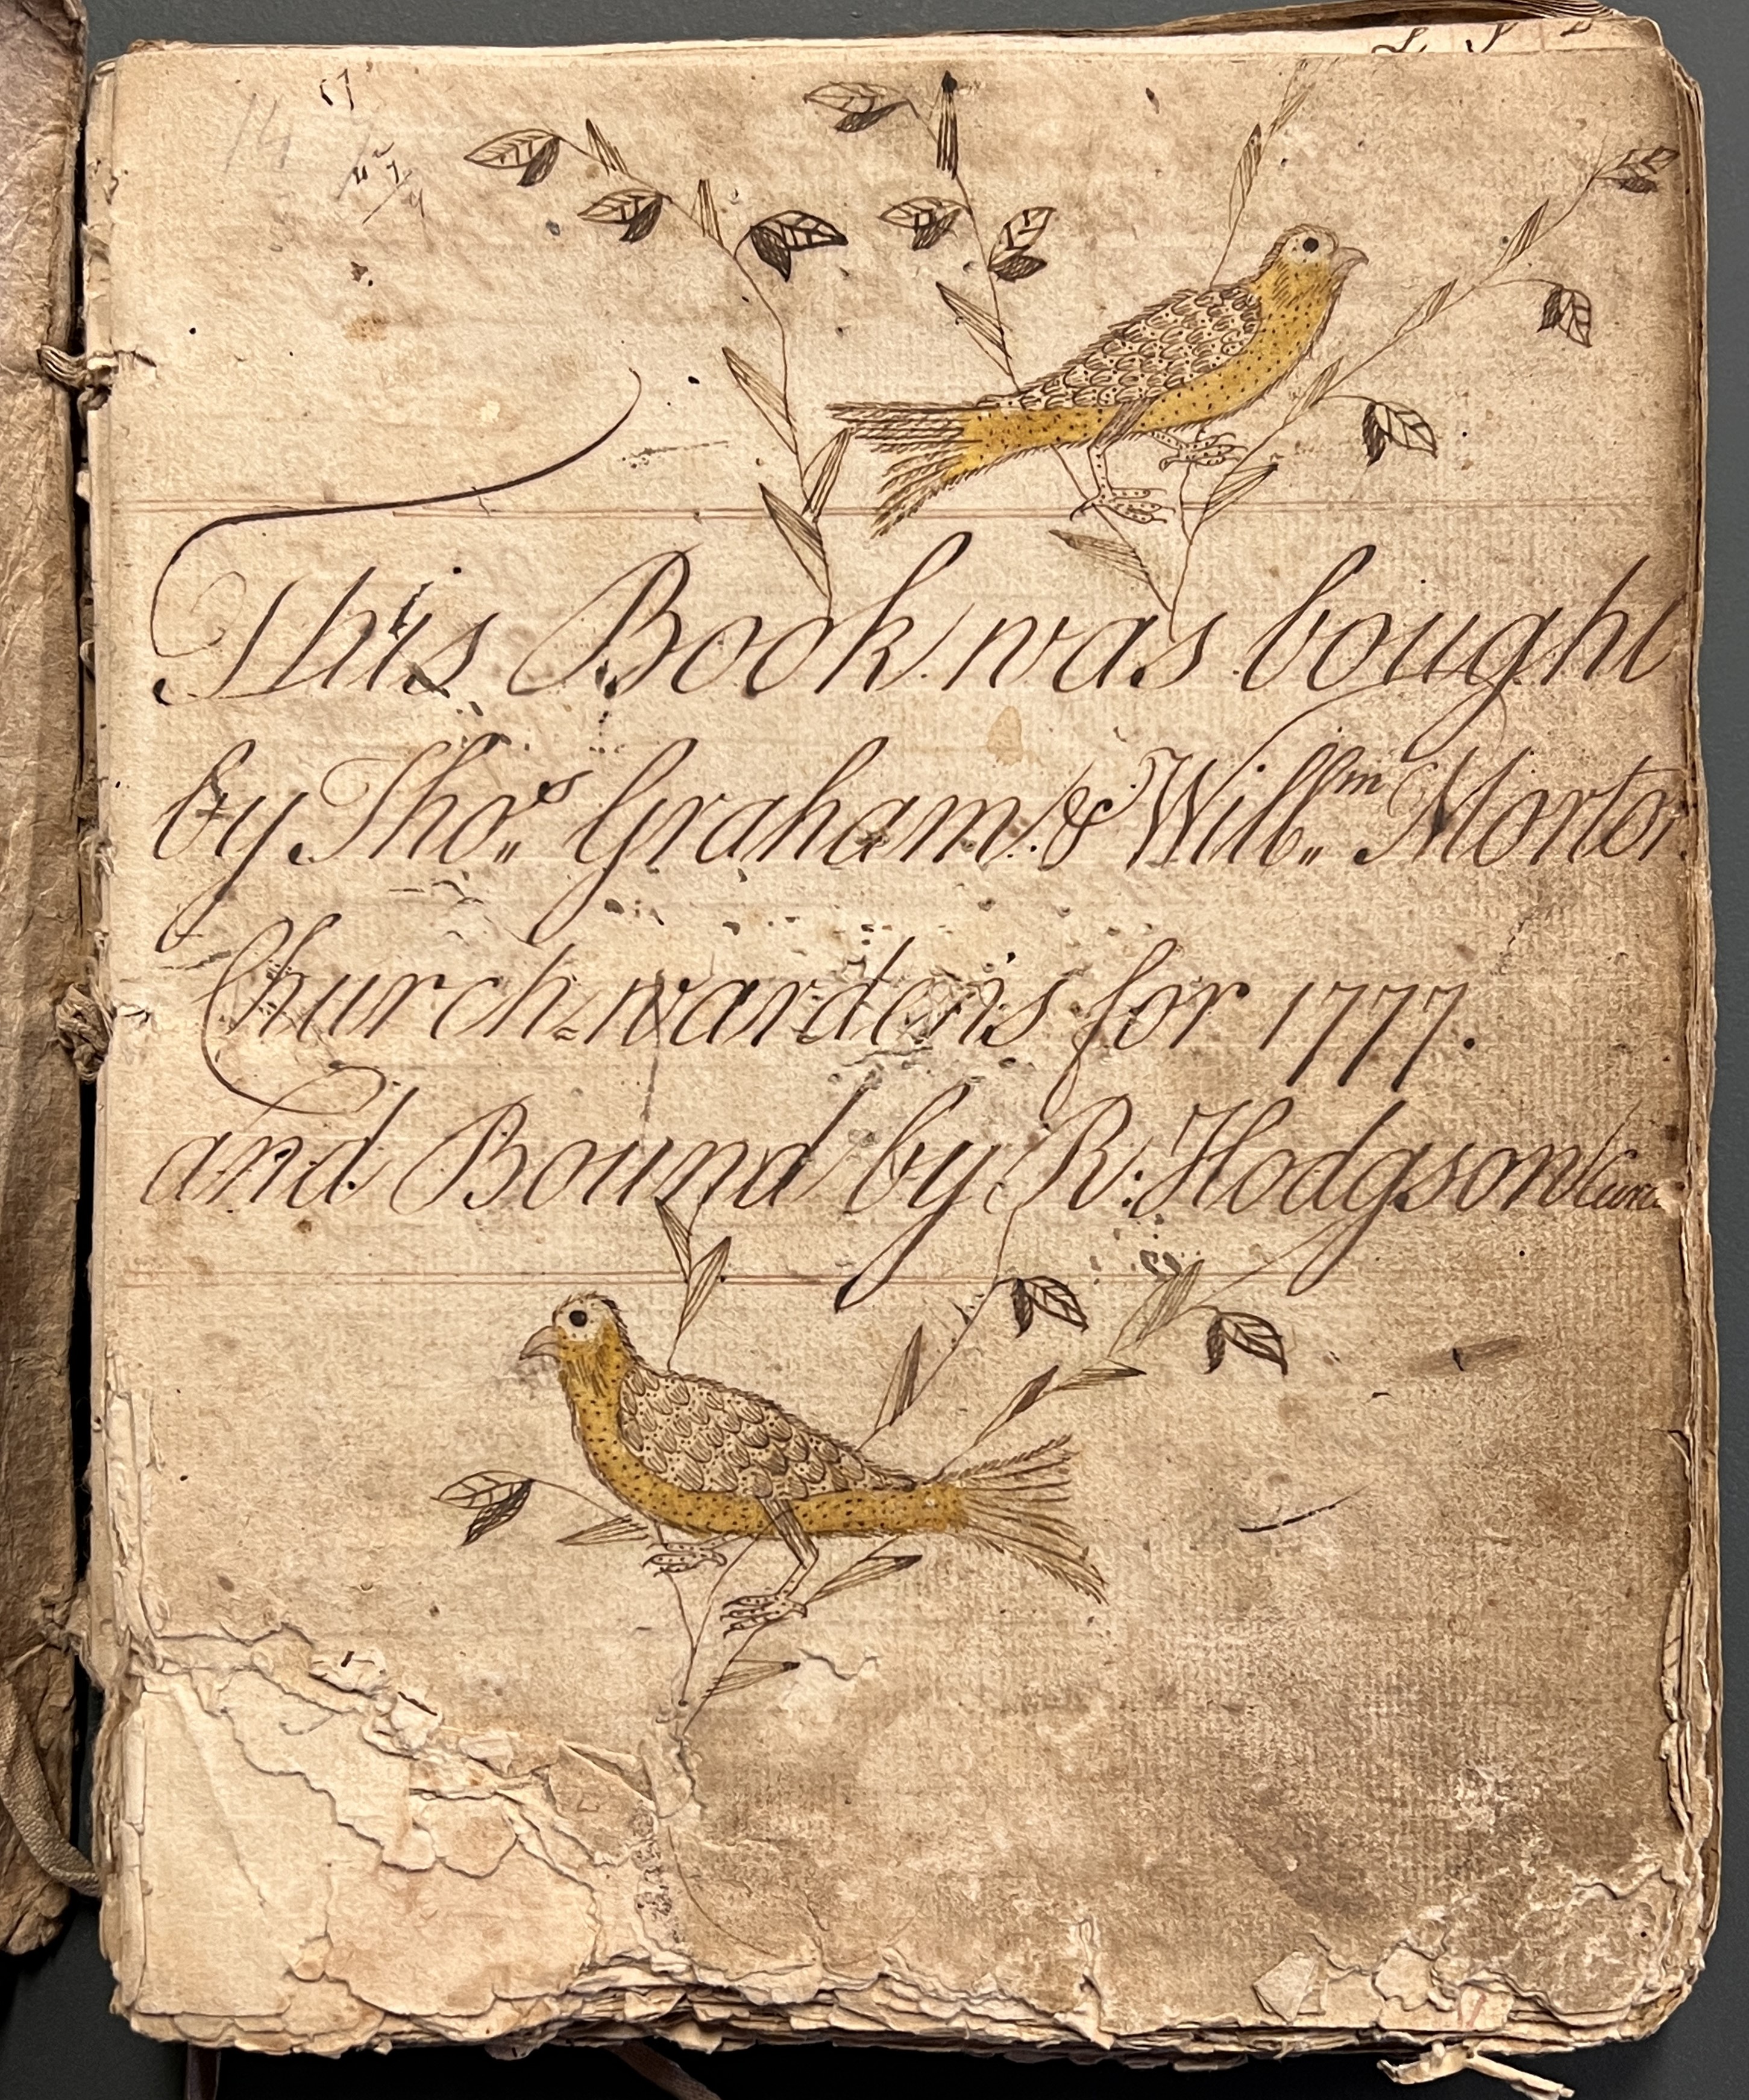 14
This Book was bought
by Thos Graham & Willm Morton
Church=wardens for 1777.
and Bound by R: Hodgson